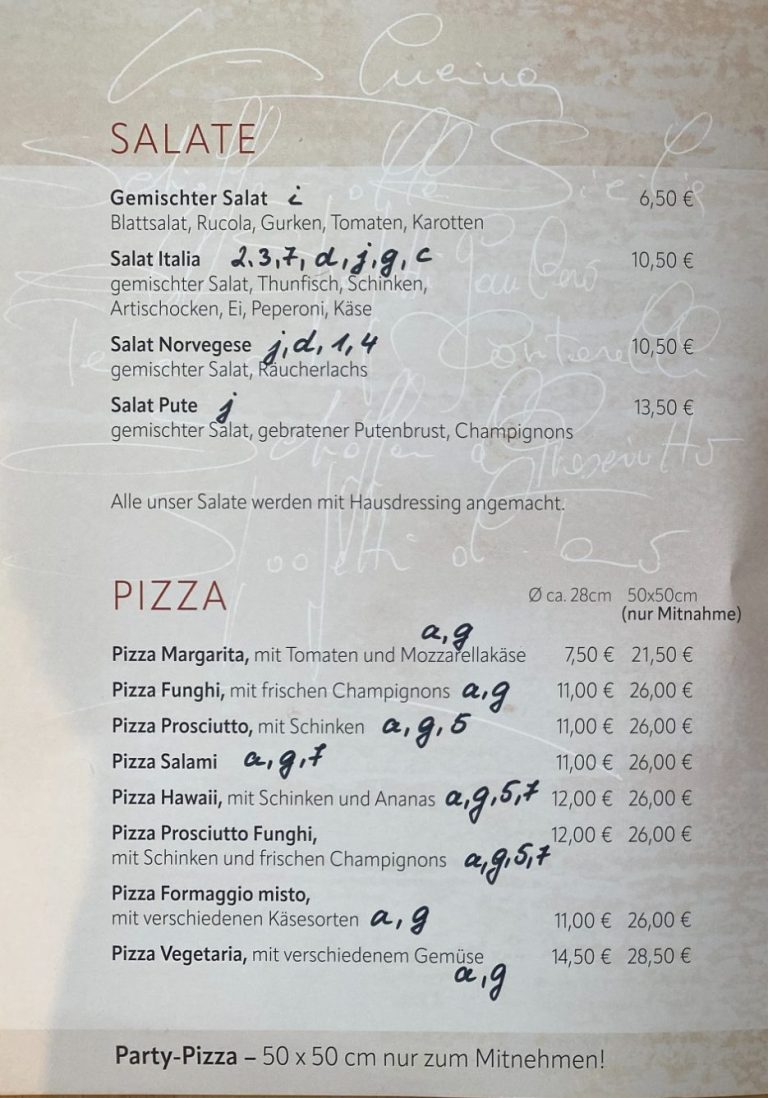 Cucina
SALATE
Gemischter Salat i 6,50 €
Blattsalat, Rucola, Gurken, Tomaten, Karotten
Salat Italia 2,3,7, d, j, g, c 10,50 €
gemischter Salat, Thunfisch, Schinken,
Artischocken, Ei, Peperoni, Käse
Salat Norvegese j, d, 1, 4 10,50 €
gemischter Salat, Räucherlachs
Salat Pute j 13,50 €
gemischter Salat, gebratener Putenbrust, Champignons
Alle unser Salate werden mit Hausdressing angemacht.
PIZZA Ø ca. 28cm 50x50cm
(nur Mitnahme)
a, g
Pizza Margarita, mit Tomaten und Mozzarellakäse 7,50 € 21,50 €
Pizza Funghi, mit frischen Champignons a, g 11,00 € 26,00 €
Pizza Prosciutto, mit Schinken a, g, 5 11,00 € 26,00 €
Pizza Salami a, g, 7 11,00 € 26,00 €
Pizza Hawaii, mit Schinken und Ananas a, g, 5, 7 12,00 € 26,00 €
Pizza Prosciutto Funghi, 12,00 € 26,00 €
mit Schinken und frischen Champignons a, g, 5, 7
Pizza Formaggio misto,
mit verschiedenen Käsesorten a, g 11,00 € 26,00 €
Pizza Vegetaria, mit verschiedenem Gemüse 14,50 € 28,50 €
a, g
Party-Pizza – 50 x 50 cm nur zum Mitnehmen!